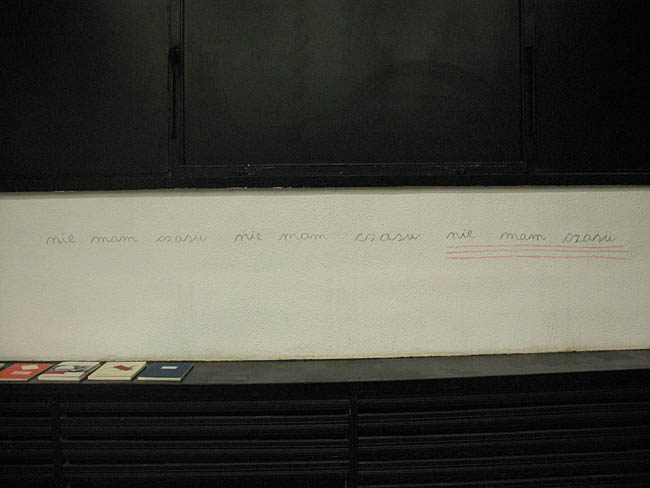 nie mam czasu nie mam czasu nie mam czasu